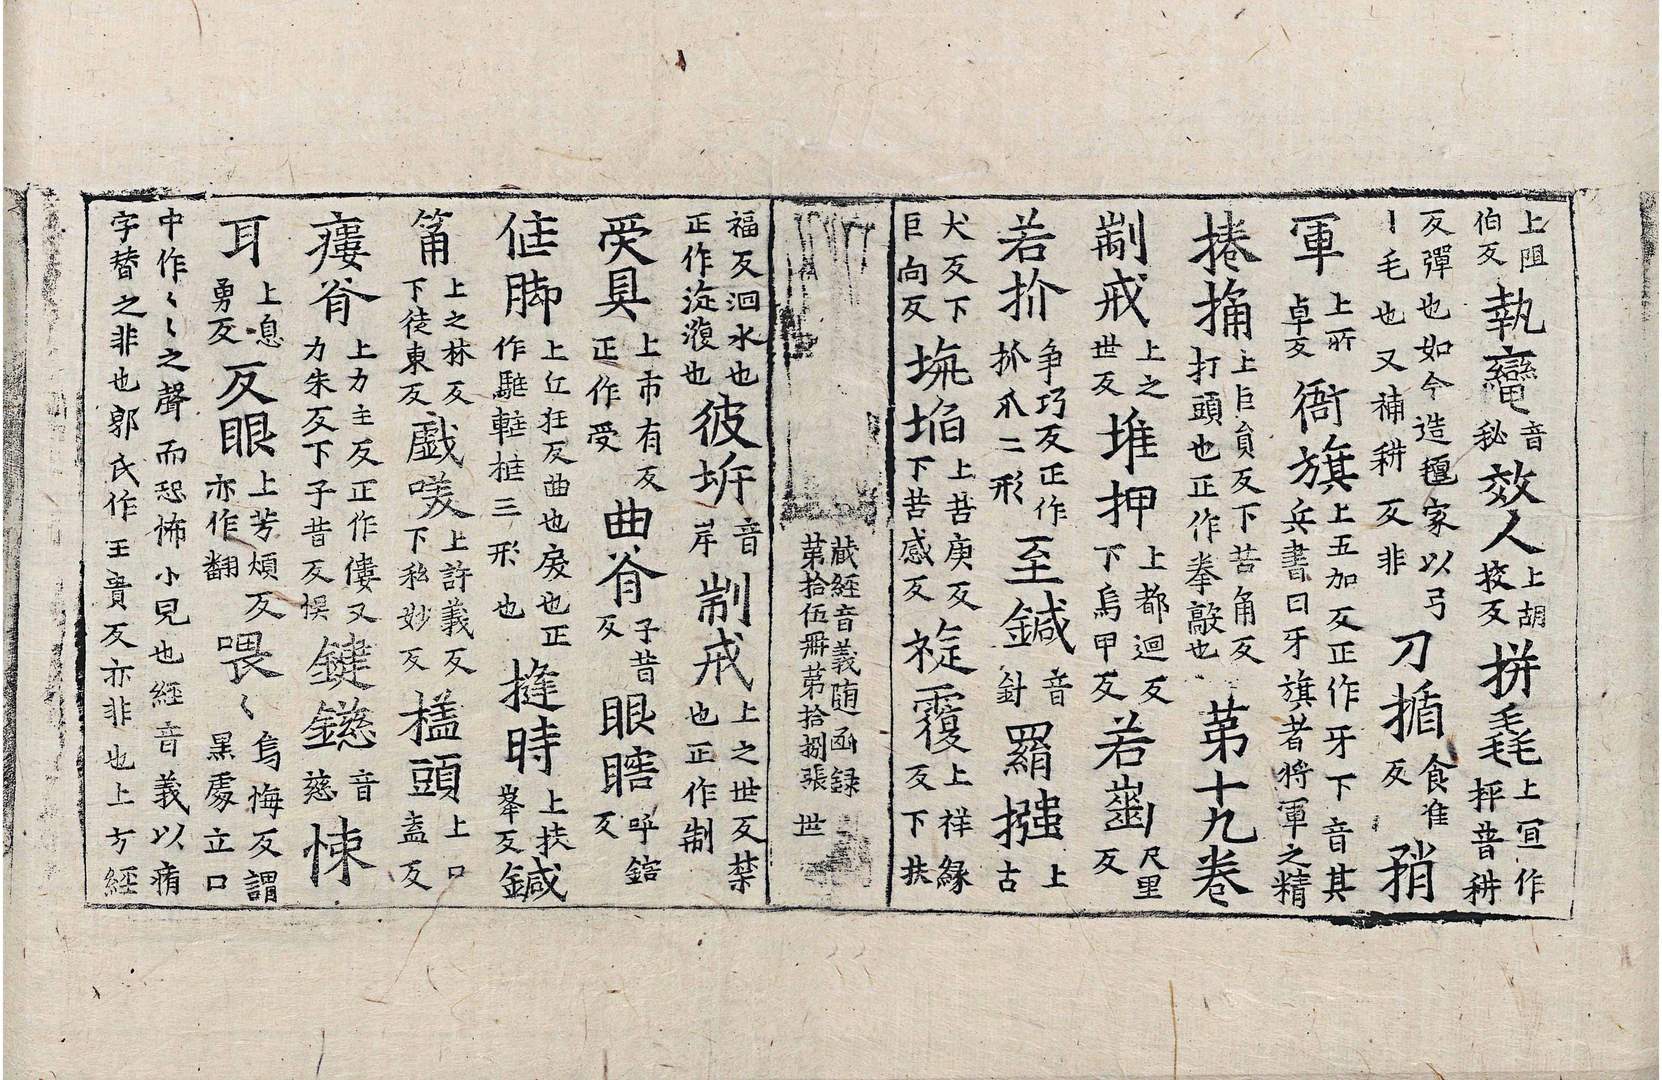 上阻伯反 執𨏥 音秘 效人 上胡挍反 拼毳 上宜作抨普耕
反彈也如今造氊家以弓丨毛也又補耕反非 刀揗 食准反 矟
軍 上所卓反 衙旗 上五加反正作牙下音其兵書曰牙旗者將軍之精
捲捔 上巨貟反下苦角反打頭也正作拳敲也 第十九卷
㓡戒 上之世反 堆押 上都迴反下烏甲反 若齒 尺里反
若扴 爭巧反正作抓爪二形 至鍼 音針 羂摾 上古
犬反下巨向反 坑埳 上苦庚反下苦感反 䙋覆 上祥緣反下扶
藏經音義随函録
第拾伍冊第拾捌張 世
福反洄水也正作漩澓也 彼圻 音岸 㓡戒 上之世反禁也正作制
受具 上市有反正作受 曲脊 子昔反 眼瞎 呼鎋反
㑌脚 上丘狂反曲也戾也正作䮑軭框三形也 摓時 上扶峯反 鍼
筩 上之林反下徒東反 戲唉 上許義反下私妙反 榼頭 上口盍反
瘻脊 上力主反正作僂又力朱反下子昔反悮 鍵鎡 音慈 悚
耳 上息勇反 反眼 上芳煩反亦作翻 喂〻 烏悔反謂黑處立口
中作〻〻之聲而恐怖小兒也經音義以痏
字替之非也郭氏作王貴反亦非也上方經